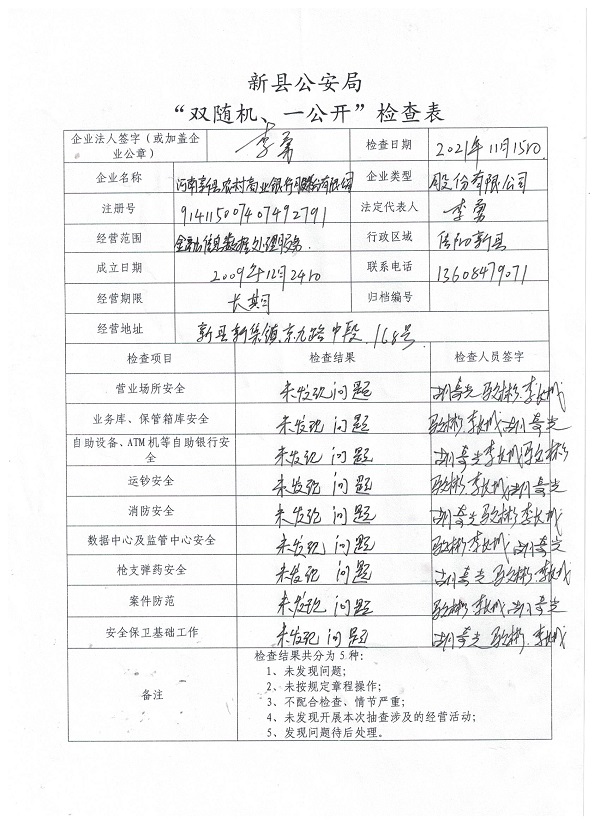 新县公安局
“双随机、一公开”检查表
企业法人签字（或加盖企业公章） 李勇 检查日期 2021年11月15日
企业名称 河南新县农村商业银行股份有限公司 企业类型 股份有限公司
注册号 914115007407492791 法定代表人 李勇
经营范围 行政区域 信阳新县
成立日期 2009年12月24日 联系电话 13608479071
经营期限 长期 归档编号
经营地址 新县新集镇京九路中段168号
检查项目 检查结果 检查人员签字
营业场所安全 未发现问题
业务库、保管箱库安全 未发现问题
自助设备、ATM机等自助银行安全 未发现问题
运钞安全 未发现问题
消防安全 未发现问题
数据中心及监管中心安全 未发现问题
枪支弹药安全 未发现问题
案件防范 未发现问题
安全保卫基础工作 未发现问题
备注
检查结果共分为5种：
1、未发现问题；
2、未按规定章程操作；
3、不配合检查、情节严重；
4、未发现开展本次抽查涉及的经营活动；
5、发现问题待后处理。